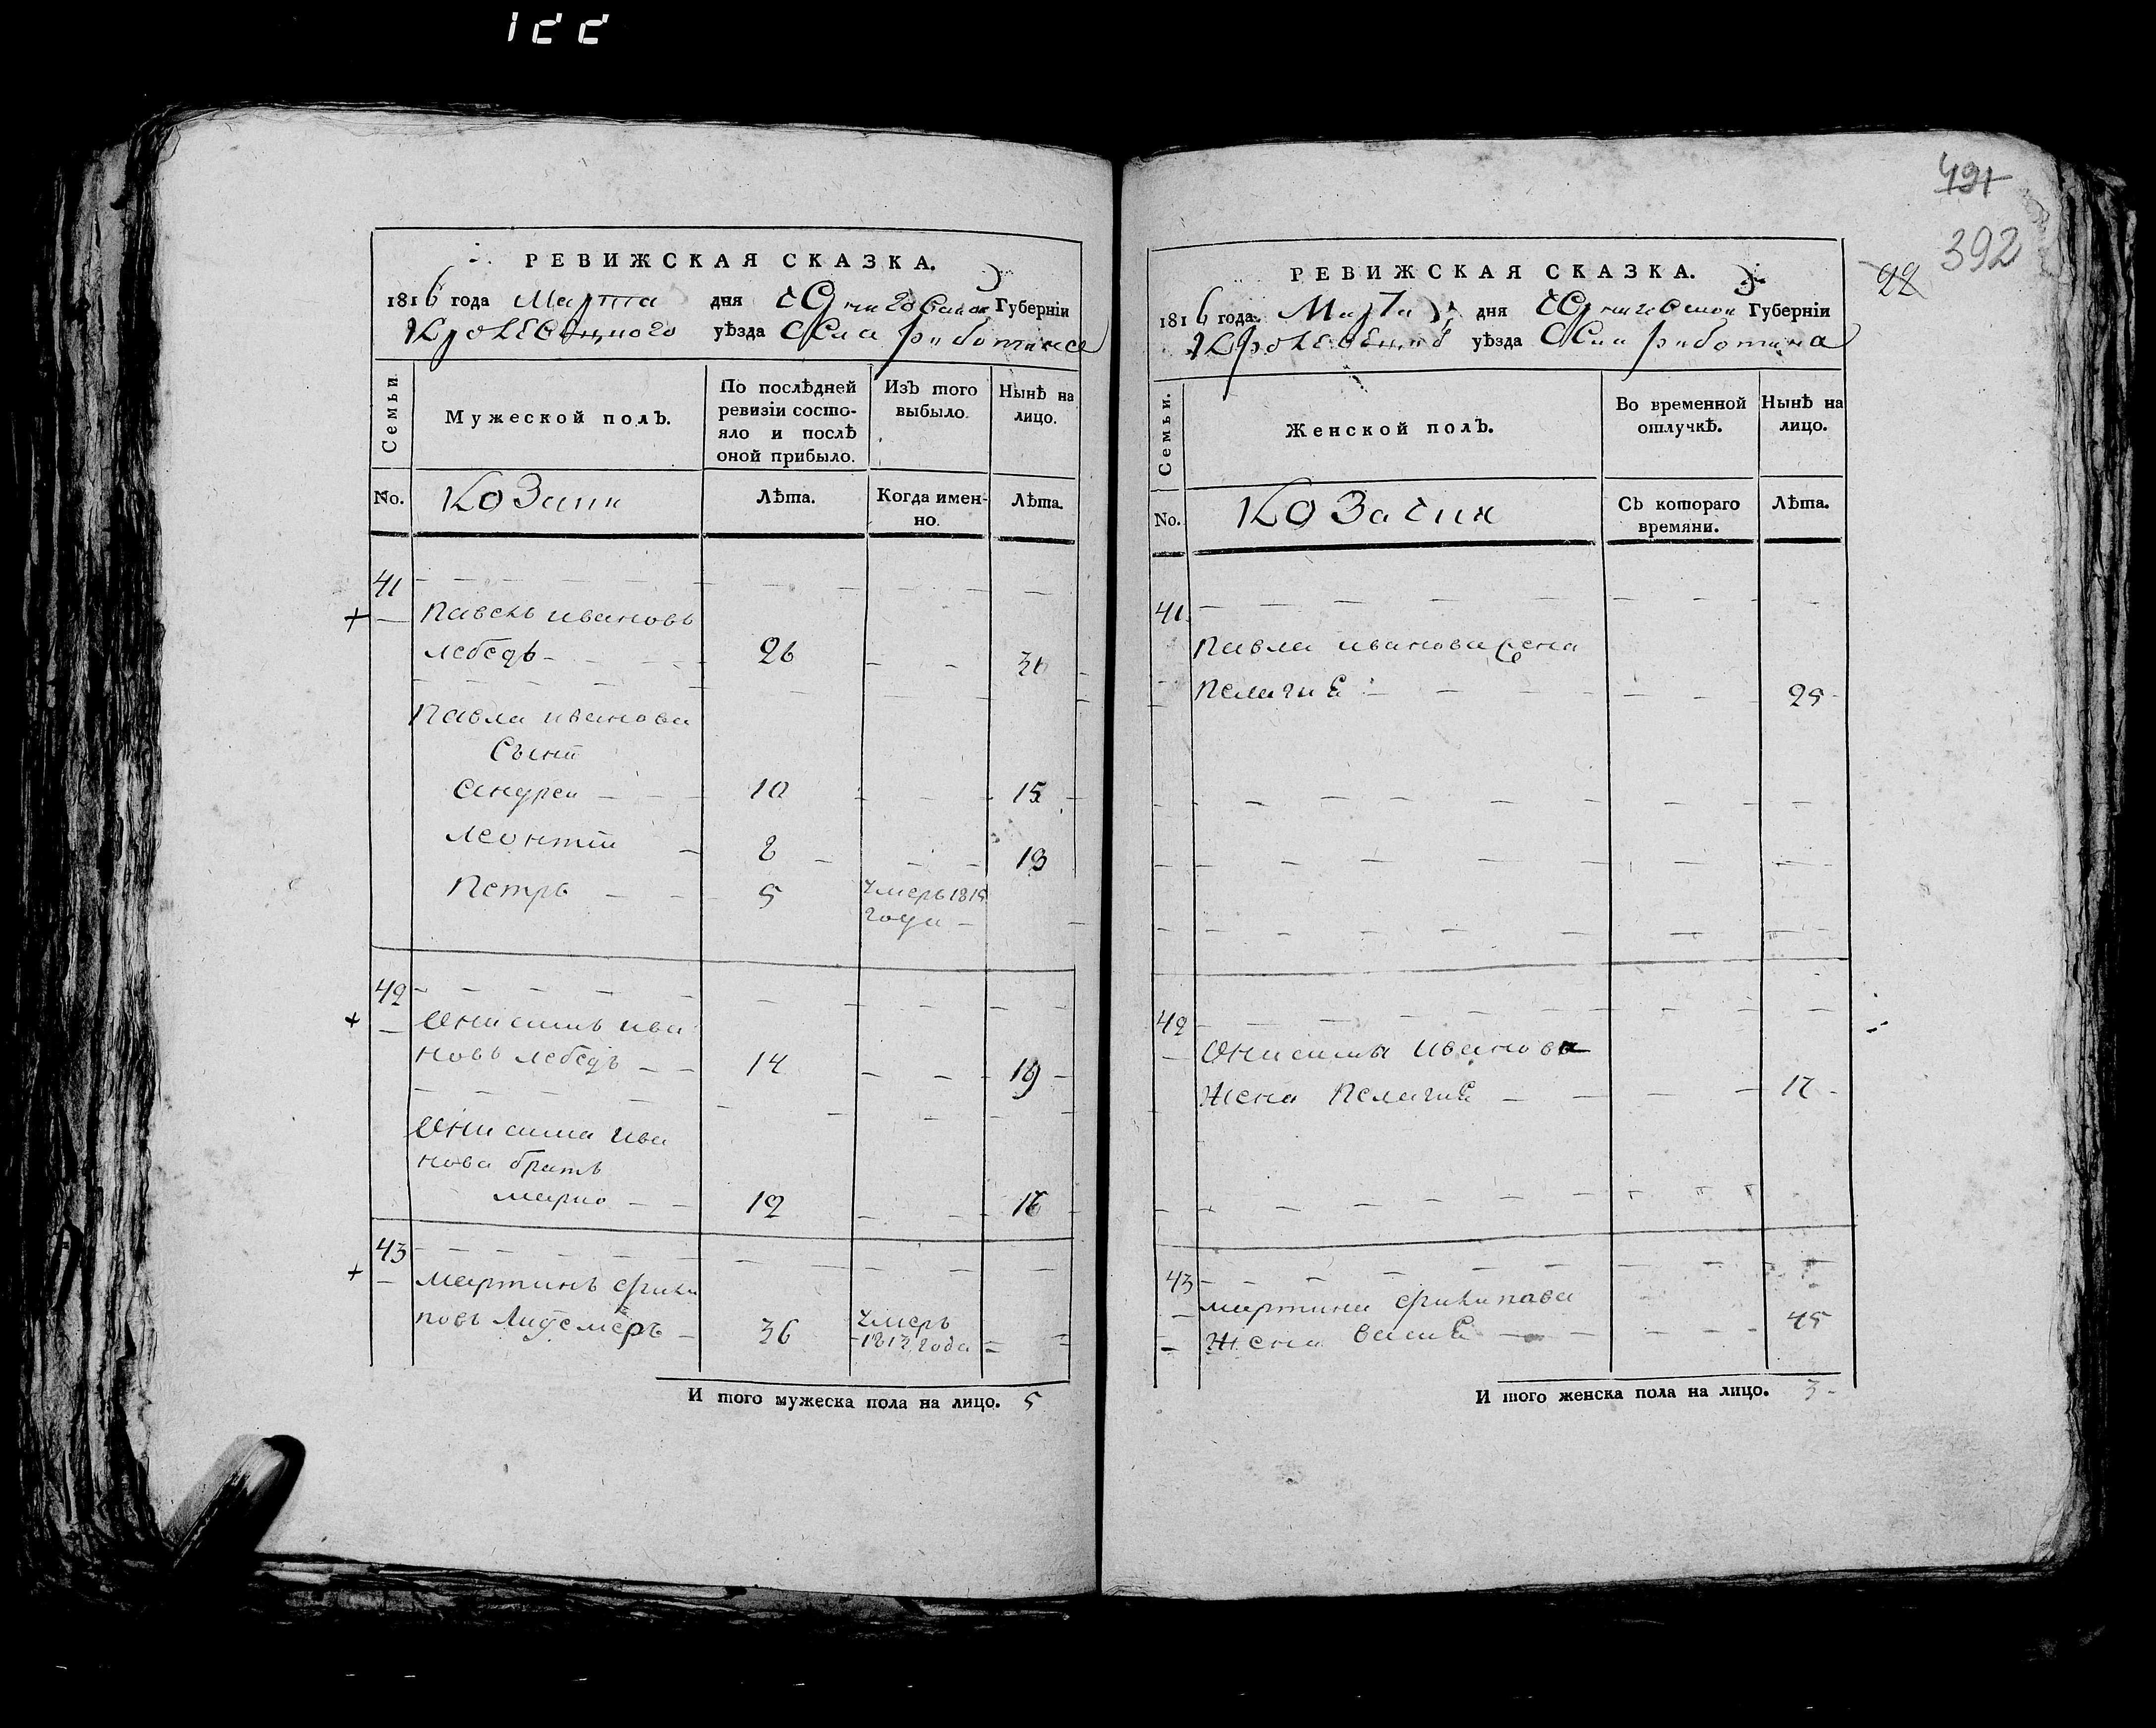 122
РЕВИЖСКАЯ СКАЗКА.
1816 года Марта дня Черниговской Губерніи
Кролевецкого уѣзда Села работина
Семьи
Мужеской полъ.
По послѣдней ревизіи состо-
яло и послѣ
оной прибыло.
Изъ того
выбыло.
Нынѣ на
лицо.
No.
Козаки
Лѣта.
Когда имен-
но.
Лѣта.
41
Павелъ ивановъ
лебедь 26
Павла иванова
Сыни
андреи 10 15
леонтіи 8 13
Петръ 5 умеръ 1815
года
42
Онисимъ ива
новъ лебедь 14 19
Онисима ива
нова братъ
марко 12
43
мартинъ фили
повъ 36 умеръ
1813 года
И того мужеска пола на лицо. 5
491
392
22
РЕВИЖСКАЯ СКАЗКА.
1816 года Марта дня Черниговской Губерніи
Кролевецког уѣзда Села работина
Семьи.
Женской полъ.
Во временной
отлучкѣ.
Нынѣ на
лицо.
No.
Козачки
Съ котораго
времяни.
Лѣта.
41
Павла иванова жена
Пелагия 25
42
Онисима иванова
жена Пелагия 17
43
мартина филипова
жена 45
И того женска пола на лицо. 3